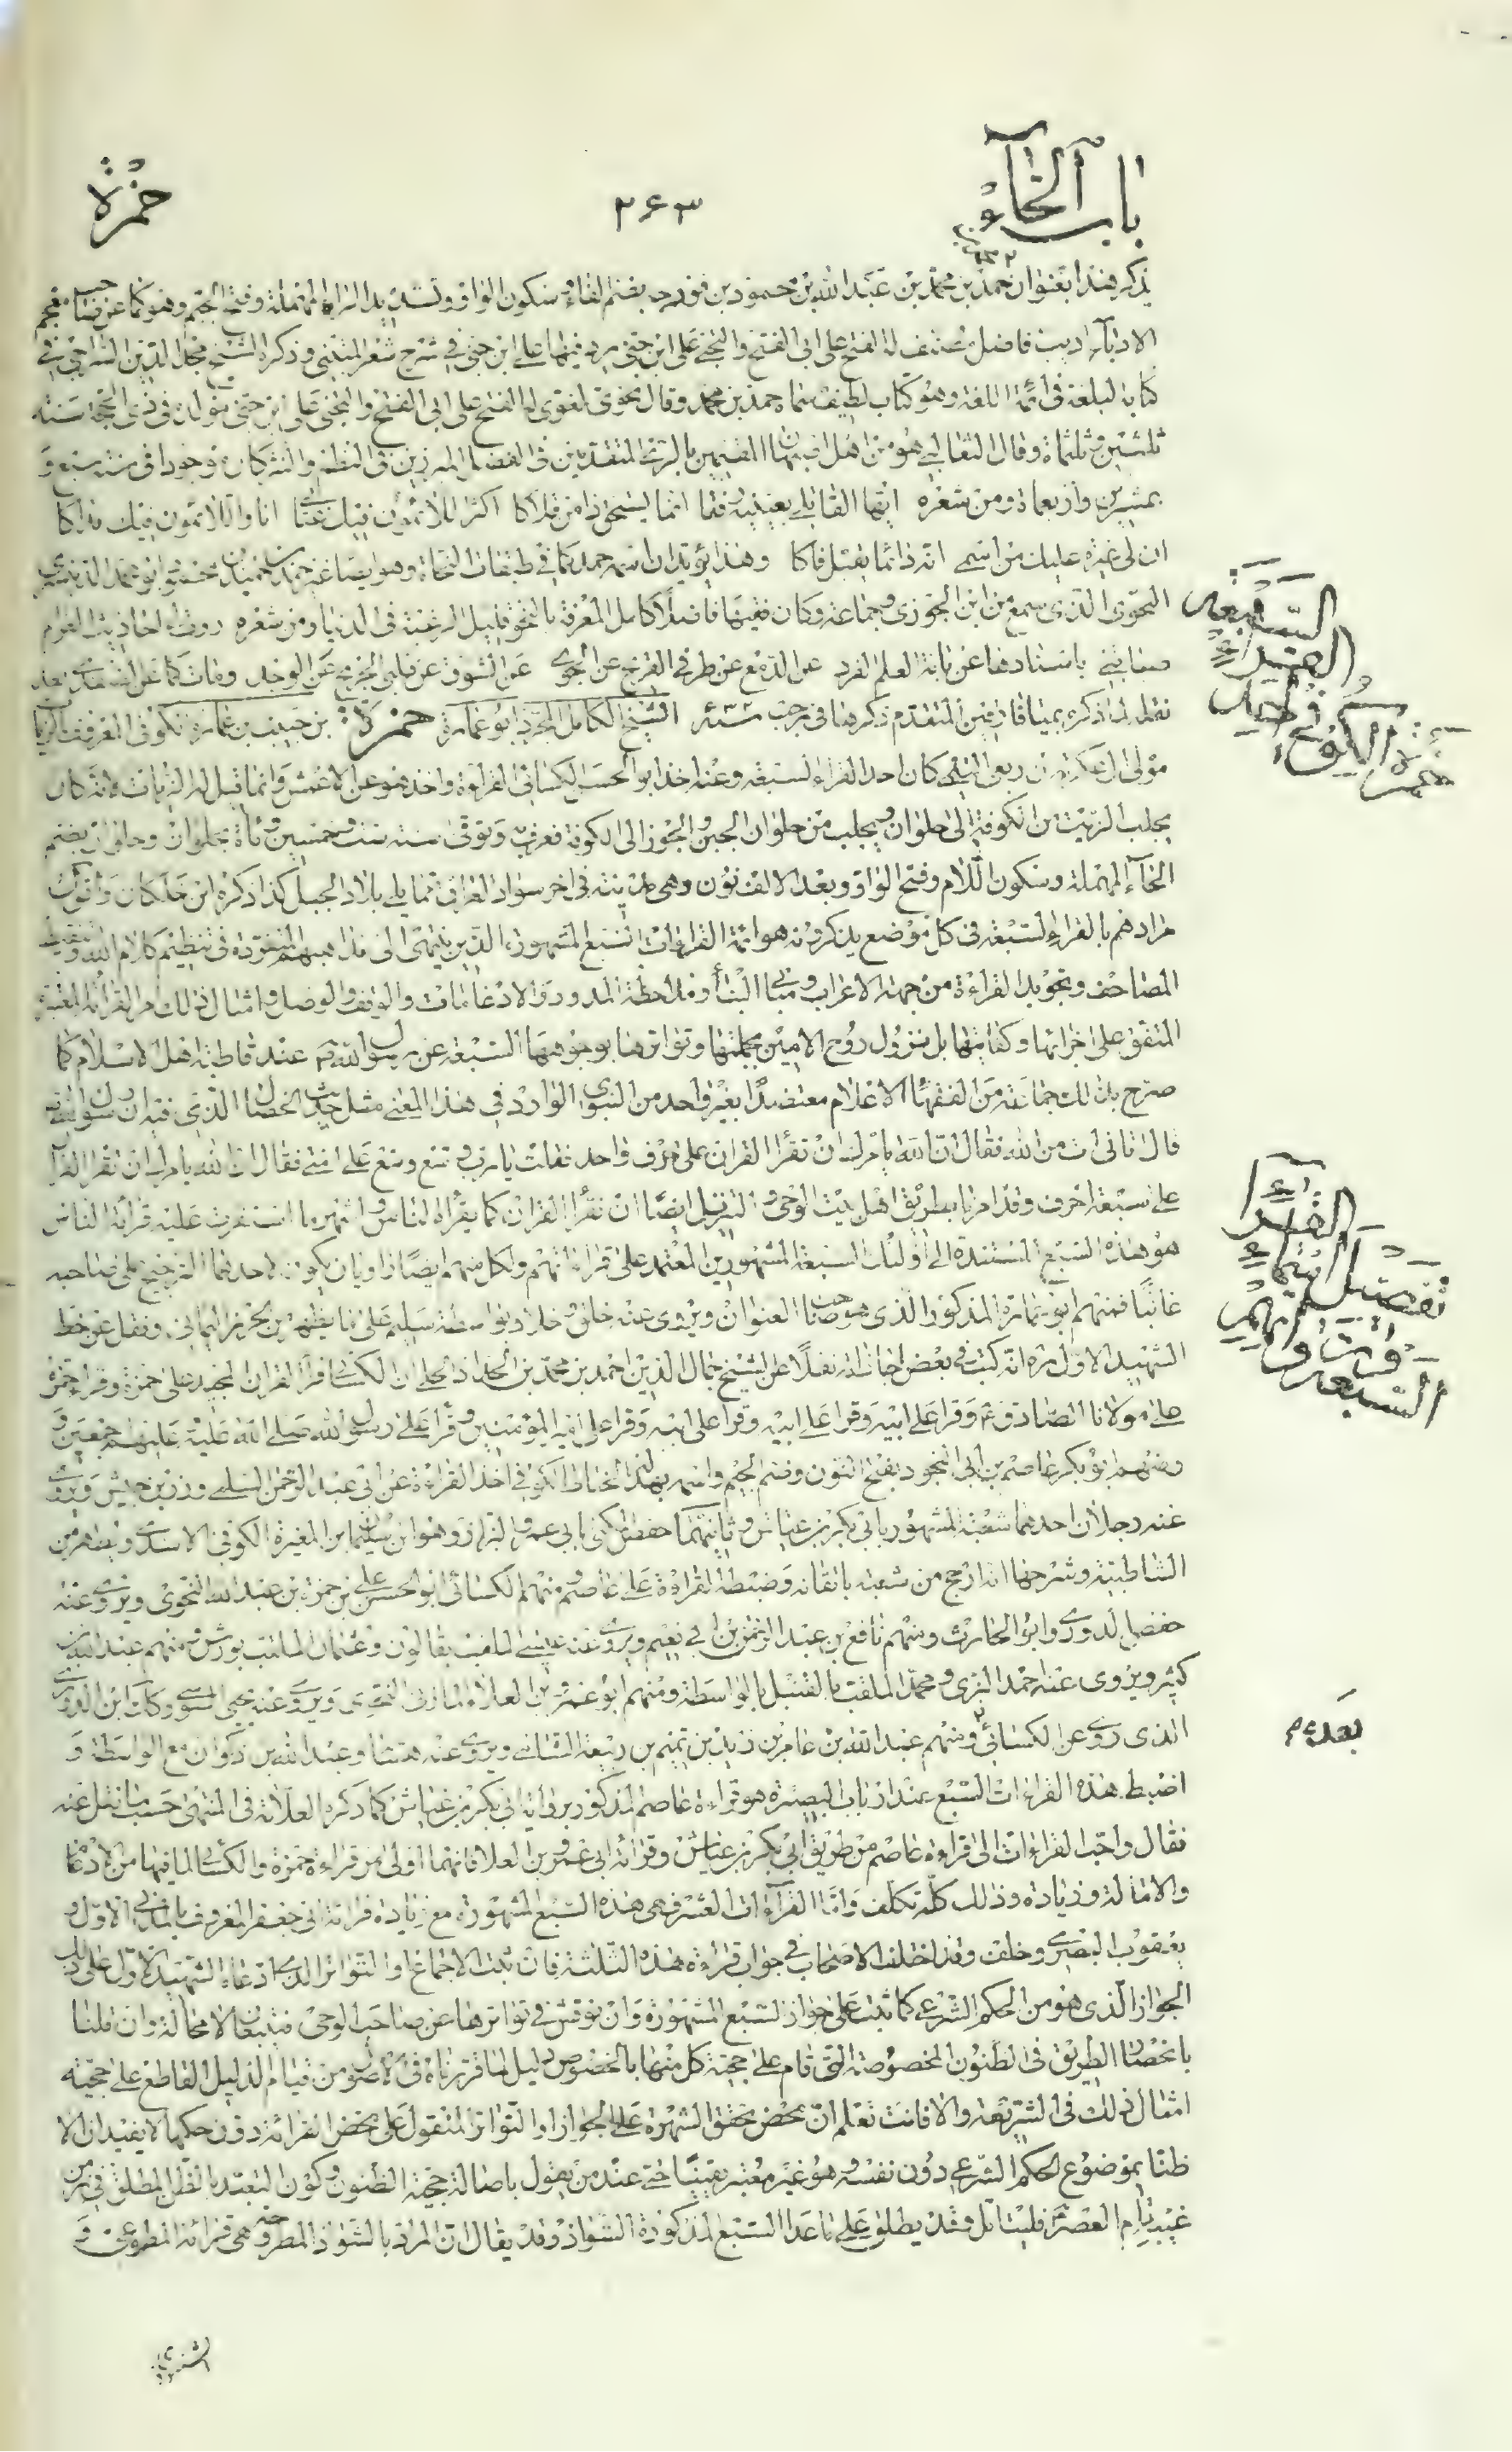 باب الحاء
٢۶٣
حمزة
يذكر هذا بعنوان حمد بن محمد بن عبد الله بن محمود بن فورجه بضم الفاء وسكون الواو وتشديد الراء المهملة وفتح الجيم وهو كما عن صاحب معجم
الادباء اديب فاضل مصنف له الفتح على ابى الفتح والتجنى على ابن جنى يرد فيهما على ابن جنى فى شرح شعر المتنبى وذكره الشيخ مجد الدين الشيرازى فى
كتاب البلغة فى ائمة اللغة وهو كتاب لطيف سماه حمد بن محمد وقال نحوى لغوى له الفتح على ابى الفتح والتجنى على ابن جنى مولده فى ذى الحجة سنة
ثلثين وثلثمائة وقال الثعالبى هو من اهل اصبهان المقيمين بالرى المتقدمين فى الفضل المبرزين فى النظم والنثر كان موجودا فى سنة سبع و
عشرين واربعمائة ومن شعره ايها القاتلى بعينيه رفقا انما يستحق ذا من قلاكا اكثر اللائمون فيك عتابى انا واللائمون فيك فداكا
ان لى غيرة عليك من اسمى انه دائما يقبل فاكا وهذا يؤيد ان اسمه حمد كما فى طبقات النحاة وهو ايضا غير حمد بن حميد بن محمود ابو محمد الدنيسرى
النحوى الذى سمع من ابن الجوزى وجماعة وكان فقيها فاضلا كامل المعرفة بالنحو قليل الرغبة فى الدنيا ومن شعره روت لى احاديث الغرام
صبابتى باسنادها عن بانة العلم الفرد عن الدمع عن طرفى القريح عن الجوى عن الشوق عن قلبى الجريح عن الوجد ومات كما عن الصفدى بعد
نقله لما ذكره بميافارقين المتقدم ذكرها فى رجب سنة الشيخ الكامل المجرد ابو عمارة حمزة بن حبيب بن عمارة الكوفى المعروف بالزيات
مولى آل عكرمة بن ربعى التيمى كان احد القراء السبعة وعنه اخذ ابو الحسن الكسائى القراءة واخذ هو عن الاعمش وانما قيل له الزيات لانه كان
يجلب الزيت من الكوفة الى حلوان ويجلب من حلوان الجبن والجوز الى الكوفة فعرف به وتوفى سنة ست وخمسين ومأة بحلوان وحلوان بضم
الحاء المهملة وسكون اللام وفتح الواو وبعد الالف نون وهى مدينة فى اخر سواد العراق مما يلى بلاد الجبل كذا ذكره ابن خلكان واقول
مرادهم بالقراء السبعة فى كل موضع يذكرونه هو ائمة القراءات السبع المشهورة الذين ينتهى الى مذاهبهم المتفردة فى تنظيم كلام الله وتنقيط
المصاحف وتجويد القراءة من جهة الاعراب ومبانى البناء وملاحظة المدود والادغامات والوقف والوصل وامثال ذلك امر القرائة المعتبرة
المتفق على اجزائها وكفايتها بل نزول روح الامين بجملتها وتواترها بوجوهها السبعة عن رسول الله ص عند قاطبة اهل الاسلام كما
صرح بذلك جماعة من الفقهاء الاعلام معتضدا بغير واحد من النبوى الوارد فى هذا المعنى مثل حديث الخصال الذى فيه ان رسول الله ص
قال اتانى ات من الله فقال ان الله يامرك ان تقرأ القران على حرف واحد فقلت يا رب وسع على امتى فقال ان الله يامرك ان تقرا القرآن
على سبعة احرف وقد امرنا بطريق اهل بيت الوحى والتنزيل ايضا ان نقرأ القران كما يقرأه الناس واشهر ما استقرت عليه قرائة الناس
هو هذه السبع المستندة الى اولئك السبعة المشهورين المعتمد على قراءاتهم ولكل منهم ايضا راويان يكون لاحدهما الترجيح على صاحبه
غالبا فمنهم ابو عمارة المذكور الذى هو صاحب العنوان ويروى عنه خلف وخلاد بواسطة سليم على ما يظهر من تحرير اليمانى ونقل عن خط
الشهيد الاول ره انه كتب فى بعض اجازاته نقلا عن الشيخ جمال الدين احمد بن محمد بن الحداد الحلى ان الكسائى قرأ القران المجيد على حمزة وقراء حمزة
على مولانا الصادق ع وقرا على ابيه وقرا على ابيه وقرا على ابيه وقرا على امير المؤمنين وقرأ على رسول الله صلى الله عليه وعليهم اجمعين و
منهم ابو بكر عاصم بن ابى النجود بفتح النون وضم الجيم واسمه بهدلة الحناط الكوفى اخذ القراءة عن ابى عبد الرحمن السلمى وزر بن حبيش ويروى
عنه رجلان احدهما شعبة المشهور بابى بكر بن عياش وثانيهما حفص المكنى بابى عمرو البزاز وهو ابن سليمان بن المغيرة الكوفى الاسدى ويظهر من
الشاطبية وشرحها انه ارجح من شعبة باتقانه وضبطه القراءة على عاصم ومنهم الكسائى ابو الحسن على بن حمزة بن عبد الله النحوى ويروى عنه
حفص الدورى وابو الحارث ومنهم نافع بن عبد الرحمن بن ابى نعيم ويروى عنه عيسى الملقب بقالون وعثمان الملقب بورش ومنهم عبد الله بن
كثير ويروى عنه احمد البزى ومحمد الملقب بالقنبل بالواسطة ومنهم ابو عمرو بن العلاء المازنى النحوى ويروى عنه يحيى السوسى وكان ابن الدورى
الذى روى عن الكسائى ومنهم عبد الله بن عامر بن زيد بن تميم بن ربيعة الشامى ويروى عنه هشام وعبد الله بن ذكوان مع الواسطة و
اضبط هذه القراءات السبع عند ارباب البصيرة هو قراءة عاصم المذكور برواية ابى بكر بن عياش كما ذكره العلامة فى المنتهى حسب ما نقل عنه
فقال واحب القراءات الى قراءة عاصم من طريق ابى بكر بن عياش وقرائة ابى عمرو بن العلا فانهما اولى من قراءة حمزة والكسائى لما فيها من الادغام
والامالة وزيادة وذلك كله تكلف واما القراءات العشر فهى هذه السبع المشهورة مع زيادة قرائة ابى جعفر المعروف بالمدنى الاول و
يعقوب البصرى وخلف وقد اختلف الاصحاب فى جواز قراءة هذه الثلثة فان ثبت الاجماع او التواتر الذى ادعاه الشهيد الاول على ذلك
الجواز الذى هو من الحكم الشرعى كما ثبت على جواز السبع المشهورة وان نوقش فى تواترها عن صاحب الوحى فنتبعان لا محالة وان قلنا
بانحصار الطريق فى الظنون المخصوصة التى قام على حجية كل منها بالخصوص دليل لما قررناه فى الاصول من قيام الدليل القاطع على حجية
امثال ذلك فى الشريعة والا فانت تعلم ان محض تحقق الشهرة على الجواز او التواتر المنقول على محض القرائة دون حكمها لا يفيدان الا
ظنا بموضوع الحكم الشرعى دون نفسه وهو غير معتبر يقينا حتى عند من يقول باصالة حجية الظنون وكون التعبد بالظن المطلق فى زمن
غيبة امام العصر ع فليتأمل وقد يطلق على ما عدا السبع المذكورة الشواذ وقد يقال ان المراد بالشواذ المطروحة هى قرائة المطوعى و
السبعة
القراء
حمزة الكوفى
القراء
تفصيل
السبعة
بعده م
الشنبوذى